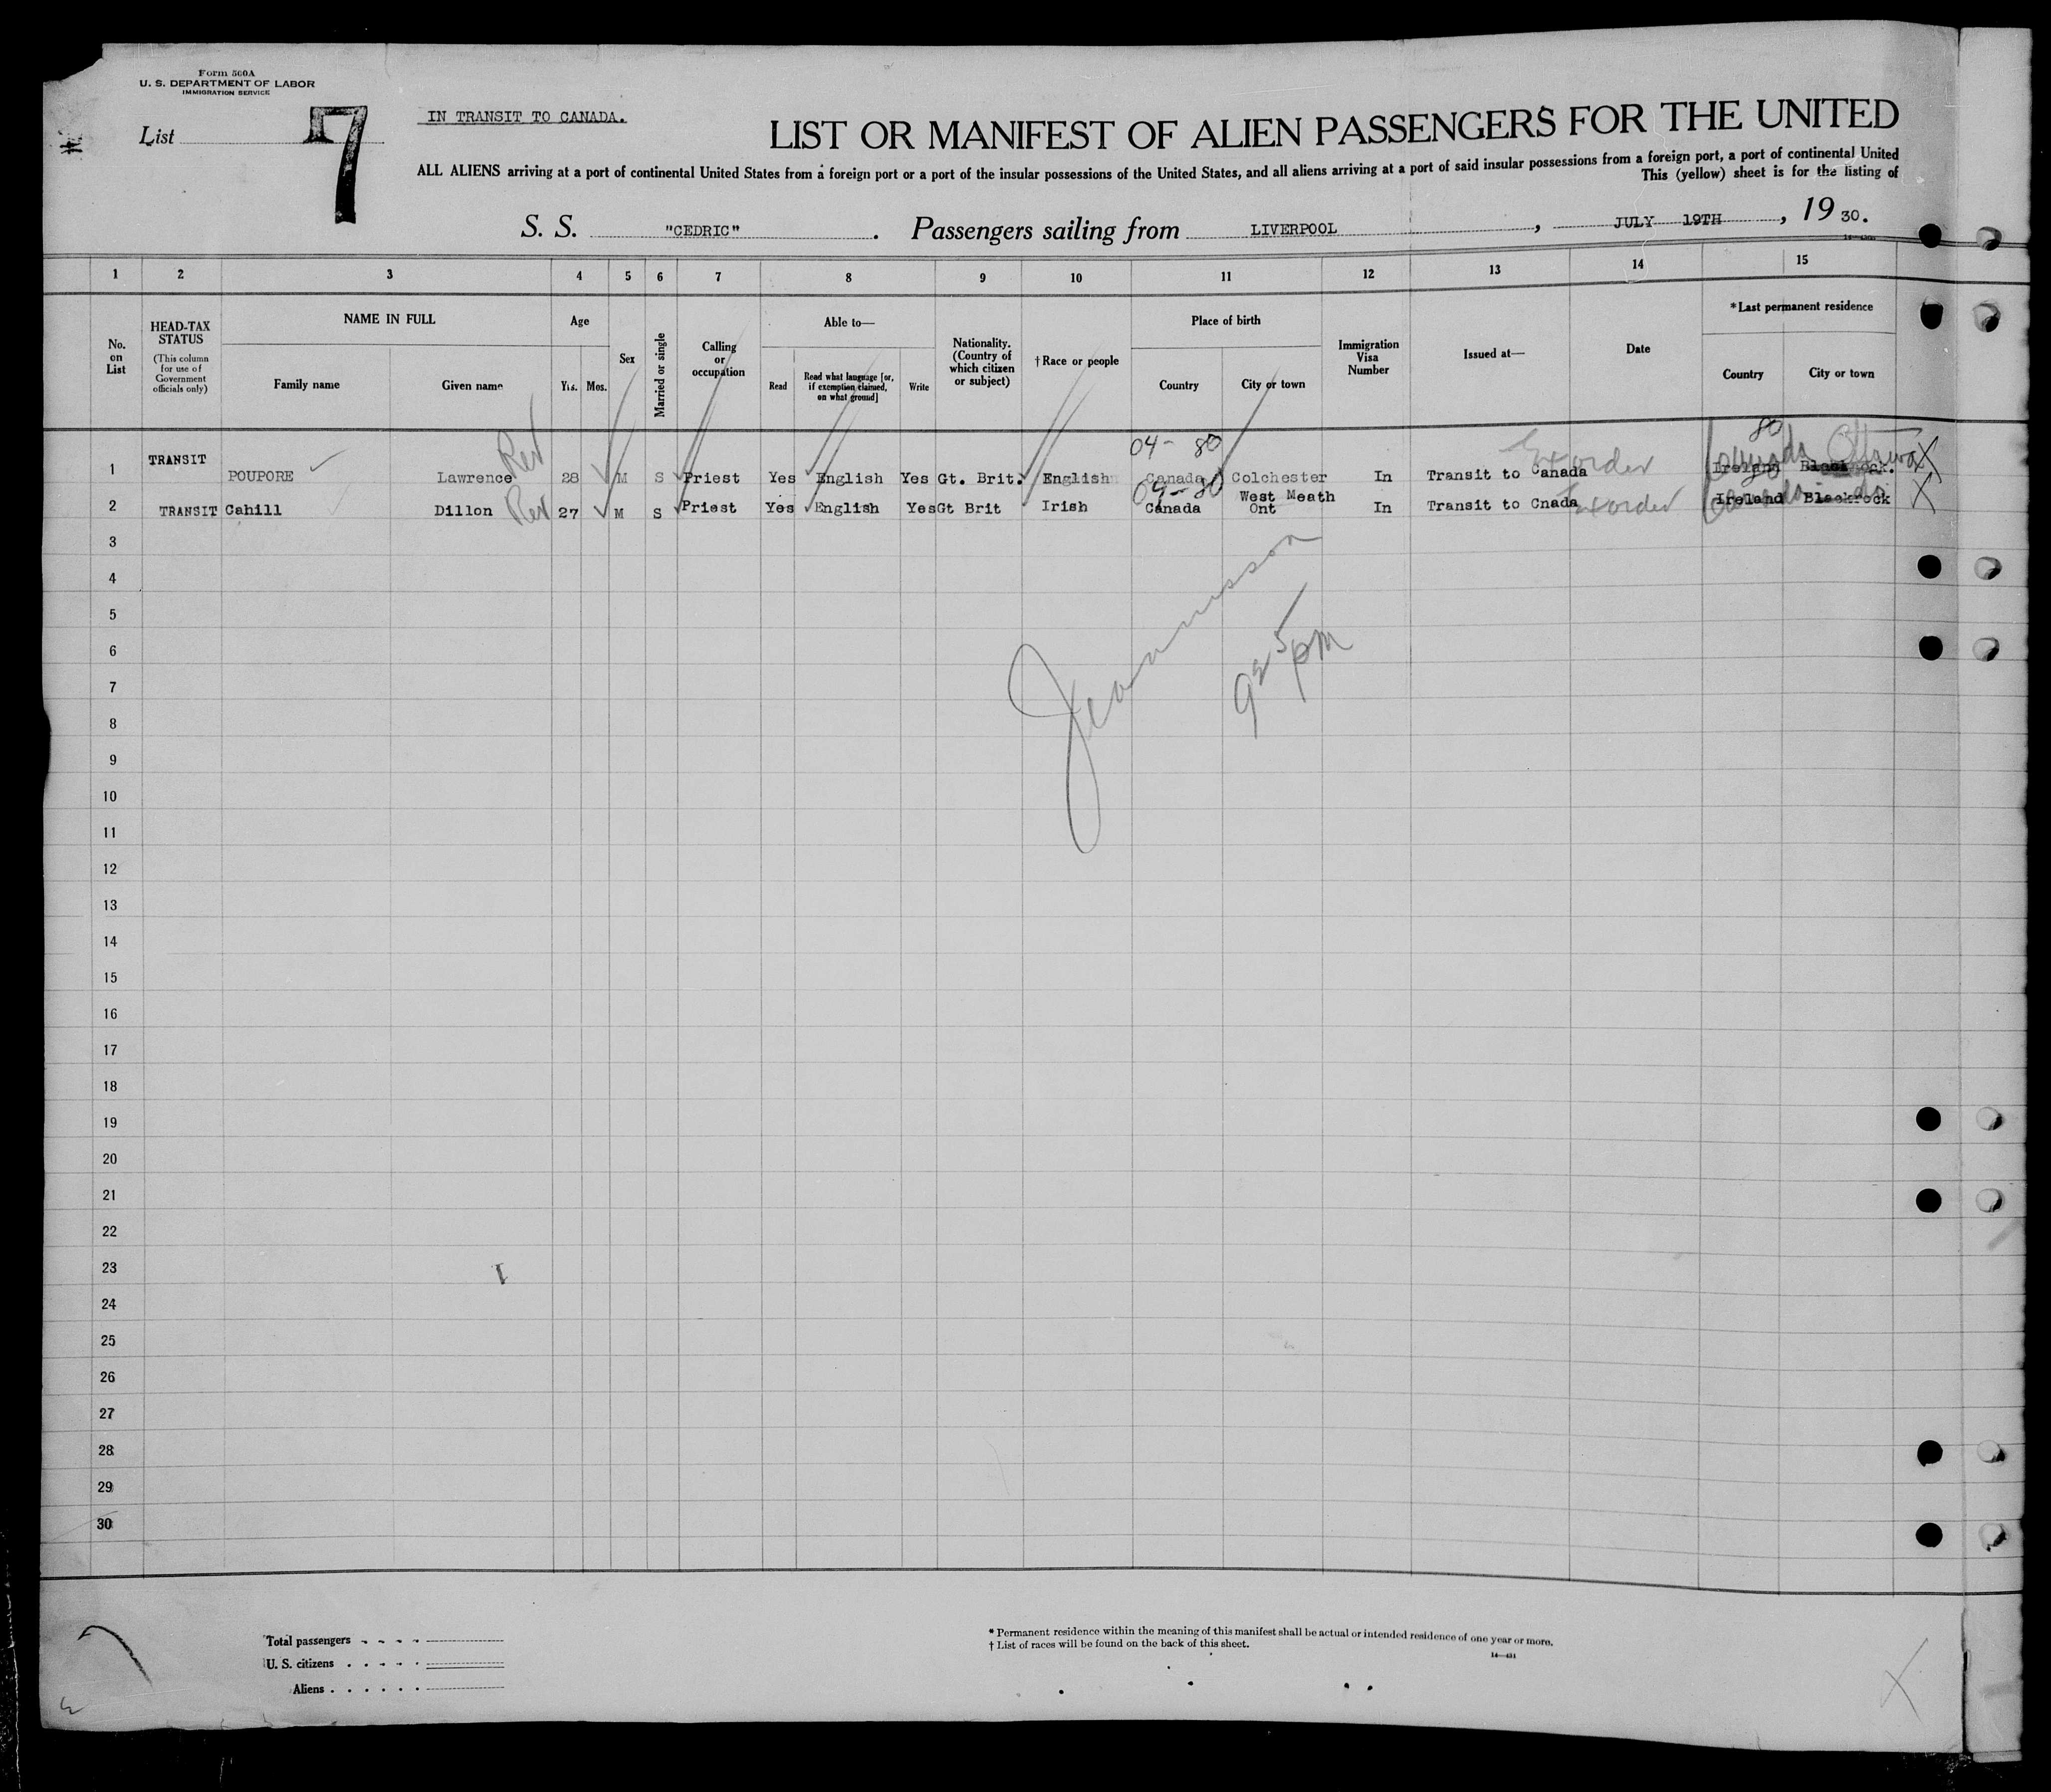 Form 500A
U. S. DEPARTMENT OF LABOR
IMMIGRATION SERVICE
List 7
IN TRANSIT TO CANADA.
LIST OR MANIFEST OF ALIEN PASSENGERS FOR THE UNITED
ALL ALIENS arriving at a port of continental United States from a foreign port or a port of the insular possessions of the United States, and all aliens arriving at a port of said insular possessions from a foreign port, a port of continental United
This (yellow) sheet is for the listing of
S. S. "CEDRIC". Passengers sailing from LIVERPOOL, JULY 19TH, 19 30.
1 2 3 4 5 6 7 8 9 10 11 12 13 14 15
No. on List
HEAD-TAX STATUS
(This column for use of Government officials only)
NAME IN FULL
Family name Given name
Age
Yrs. Mos.
Sex
Married or single
Calling or occupation
Able to—
Read
Read what language [or, if exemption claimed, on what ground]
Write
Nationality. (Country of which citizen or subject)
† Race or people
Place of birth
Country City or town
Immigration Visa Number
Issued at—
Date
*Last permanent residence
Country City or town
04- 80 80
1 TRANSIT POUPORE Lawrence Rev 28 M S Priest Yes English Yes Gt. Brit. English Canada Colchester In Transit to Canada Ireland Canada Ottawa X
04-80
2 TRANSIT Cahill Dillon Rev 27 M S Priest Yes English Yes Gt Brit Irish Canada West Meath Ont In Transit to Cnada Ireland Blackrock X
3
4
5
6
7
8
9
10
11
12
13
14
15
16
17
18
19
20
21
22
23
24
25
26
27
28
29
30
9 25 pm
Total passengers
U. S. citizens
Aliens
* Permanent residence within the meaning of this manifest shall be actual or intended residence of one year or more.
† List of races will be found on the back of this sheet.